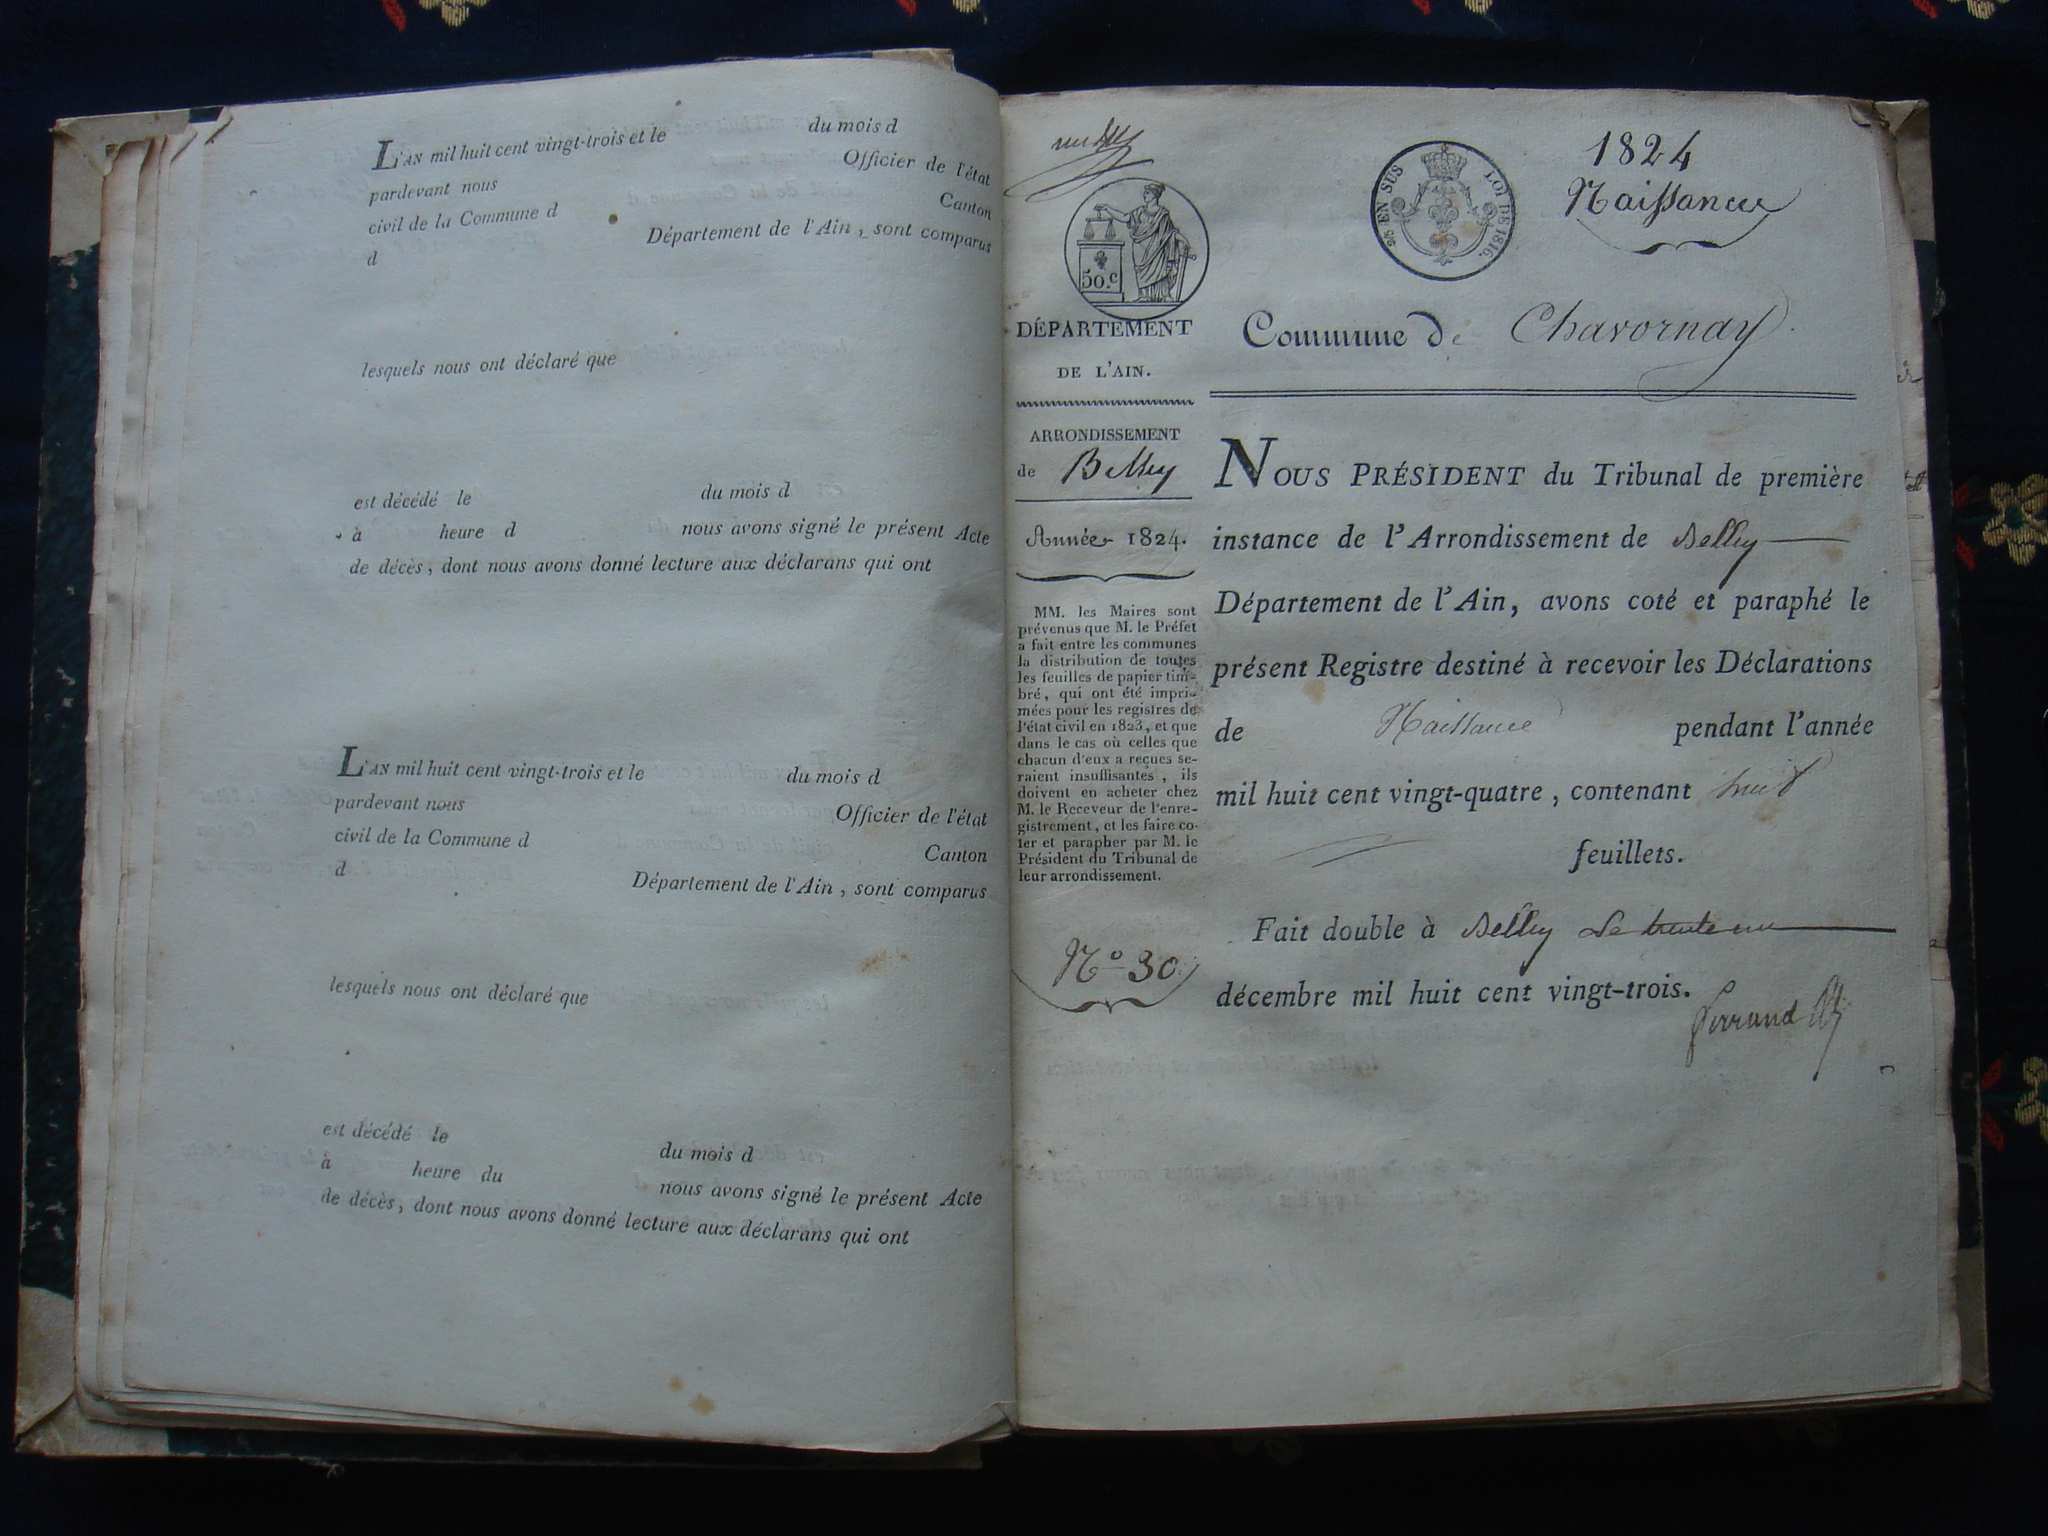 L'AN mil huit cent vingt-trois et le du mois d
pardevant nous Officier de l'état
civil de la Commune d Canton
d Département de l'Ain, sont comparus
lesquels nous ont déclaré que
est décédé le du mois d
à heure d nous avons signé le présent Acte
de décès, dont nous avons donné lecture aux déclarans qui ont
L'AN mil huit cent vingt-trois et le du mois d
pardevant nous Officier de l'état
civil de la Commune d Canton
d Département de l'Ain, sont comparus
lesquels nous ont déclaré que
est décédé le du mois d
à heure du nous avons signé le présent Acte
de décès, dont nous avons donné lecture aux déclarans qui ont
50.c
EN SUS LOI DE 1816.
1824
Naissances
DÉPARTEMENT
DE L'AIN.
ARRONDISSEMENT
de Belley
Année 1824.
MM. les Maires sont
prévenus que M. le Préfet
a fait entre les communes
la distribution de toutes
les feuilles de papier tim-
bré, qui ont été impri-
mées pour les registres de
l'état civil en 1823, et que
dans le cas où celles que
chacun d'eux a reçues se-
raient insuffisantes, ils
doivent en acheter chez
M. le Receveur de l'enre-
gistrement, et les faire co-
ter et parapher par M. le
Président du Tribunal de
leur arrondissement.
N.o 30
Commune de Chavornay
NOUS PRÉSIDENT du Tribunal de première
instance de l'Arrondissement de Belley
Département de l'Ain, avons coté et paraphé le
présent Registre destiné à recevoir les Déclarations
de Naissance pendant l'année
mil huit cent vingt-quatre, contenant huit
feuillets.
Fait double à Belley Le trente un
décembre mil huit cent vingt-trois.